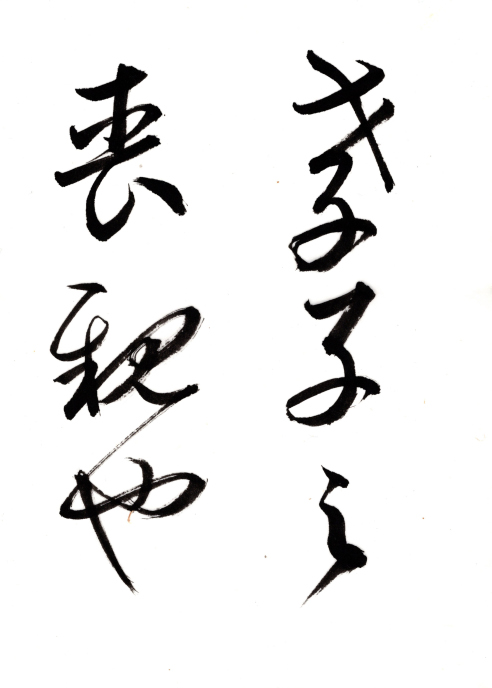 孝子之
喪親也